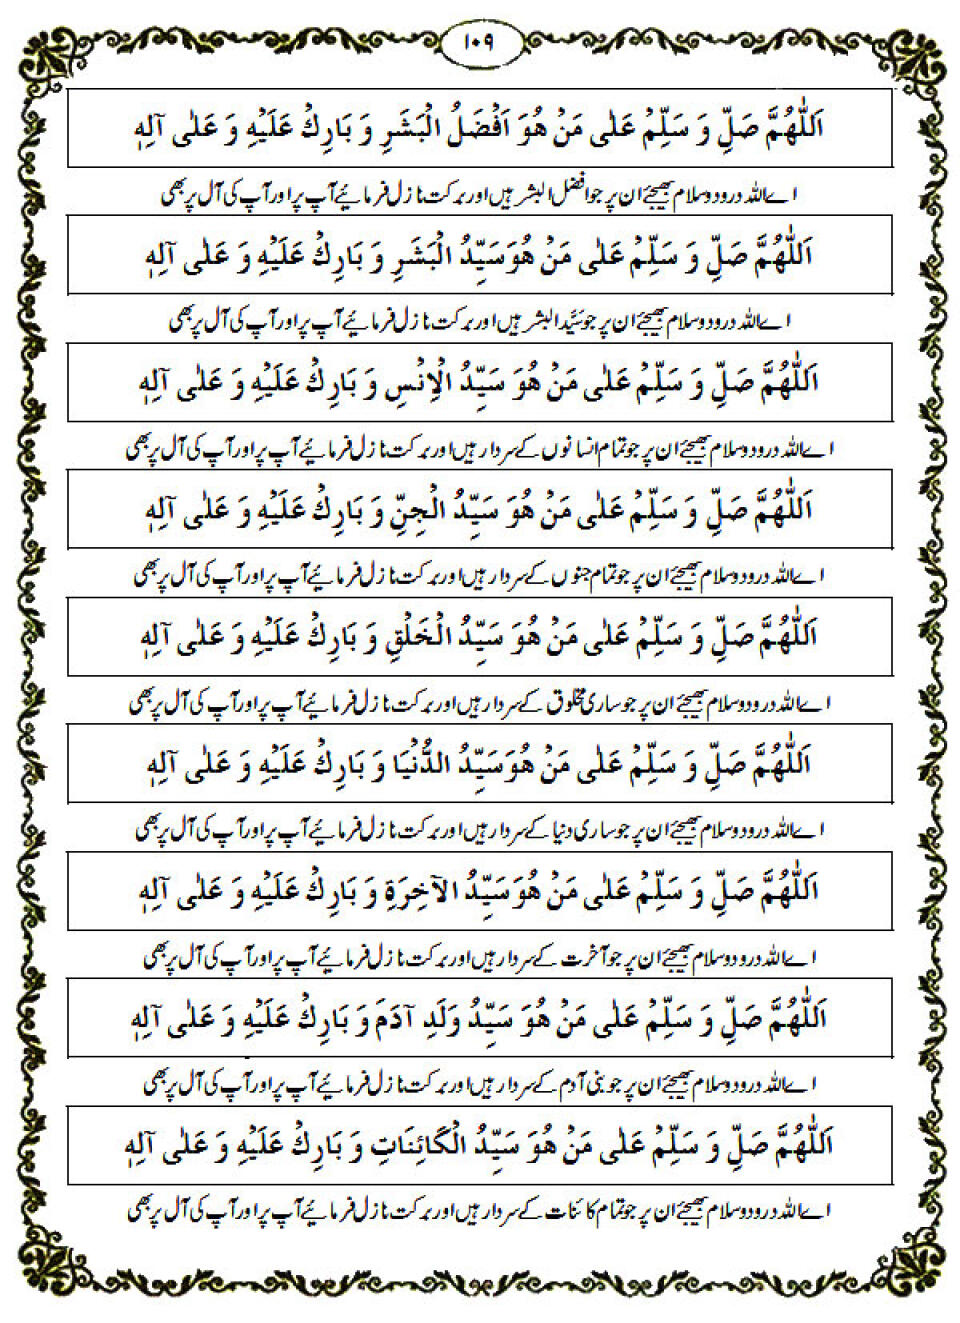 ۱۰۹
اَللّٰهُمَّ صَلِّ وَ سَلِّمْ عَلٰى مَنْ هُوَ اَفْضَلُ الْبَشَرِ وَ بَارِكْ عَلَيْهِ وَ عَلٰى آلِهٖ
اے اللہ درود و سلام بھیجئے ان پر جو افضل البشر ہیں اور برکت نازل فرمائیے آپ پر اور آپ کی آل پر بھی
اَللّٰهُمَّ صَلِّ وَ سَلِّمْ عَلٰى مَنْ هُوَ سَيِّدُ الْبَشَرِ وَ بَارِكْ عَلَيْهِ وَ عَلٰى آلِهٖ
اے اللہ درود و سلام بھیجئے ان پر جو سَیِّد البشر ہیں اور برکت نازل فرمائیے آپ پر اور آپ کی آل پر بھی
اَللّٰهُمَّ صَلِّ وَ سَلِّمْ عَلٰى مَنْ هُوَ سَيِّدُ الْاِنْسِ وَ بَارِكْ عَلَيْهِ وَ عَلٰى آلِهٖ
اے اللہ درود و سلام بھیجئے ان پر جو تمام انسانوں کے سردار ہیں اور برکت نازل فرمائیے آپ پر اور آپ کی آل پر بھی
اَللّٰهُمَّ صَلِّ وَ سَلِّمْ عَلٰى مَنْ هُوَ سَيِّدُ الْجِنِّ وَ بَارِكْ عَلَيْهِ وَ عَلٰى آلِهٖ
اے اللہ درود و سلام بھیجئے ان پر جو تمام جنوں کے سردار ہیں اور برکت نازل فرمائیے آپ پر اور آپ کی آل پر بھی
اَللّٰهُمَّ صَلِّ وَ سَلِّمْ عَلٰى مَنْ هُوَ سَيِّدُ الْخَلْقِ وَ بَارِكْ عَلَيْهِ وَ عَلٰى آلِهٖ
اے اللہ درود و سلام بھیجئے ان پر جو ساری مخلوق کے سردار ہیں اور برکت نازل فرمائیے آپ پر اور آپ کی آل پر بھی
اَللّٰهُمَّ صَلِّ وَ سَلِّمْ عَلٰى مَنْ هُوَ سَيِّدُ الدُّنْيَا وَ بَارِكْ عَلَيْهِ وَ عَلٰى آلِهٖ
اے اللہ درود و سلام بھیجئے ان پر جو ساری دنیا کے سردار ہیں اور برکت نازل فرمائیے آپ پر اور آپ کی آل پر بھی
اَللّٰهُمَّ صَلِّ وَ سَلِّمْ عَلٰى مَنْ هُوَ سَيِّدُ الآخِرَةِ وَ بَارِكْ عَلَيْهِ وَ عَلٰى آلِهٖ
اے اللہ درود و سلام بھیجئے ان پر جو آخرت کے سردار ہیں اور برکت نازل فرمائیے آپ پر اور آپ کی آل پر بھی
اَللّٰهُمَّ صَلِّ وَ سَلِّمْ عَلٰى مَنْ هُوَ سَيِّدُ وَلَدِ آدَمَ وَ بَارِكْ عَلَيْهِ وَ عَلٰى آلِهٖ
اے اللہ درود و سلام بھیجئے ان پر جو بنی آدم کے سردار ہیں اور برکت نازل فرمائیے آپ پر اور آپ کی آل پر بھی
اَللّٰهُمَّ صَلِّ وَ سَلِّمْ عَلٰى مَنْ هُوَ سَيِّدُ الْكَائِنَاتِ وَ بَارِكْ عَلَيْهِ وَ عَلٰى آلِهٖ
اے اللہ درود و سلام بھیجئے ان پر جو تمام کائنات کے سردار ہیں اور برکت نازل فرمائیے آپ پر اور آپ کی آل پر بھی